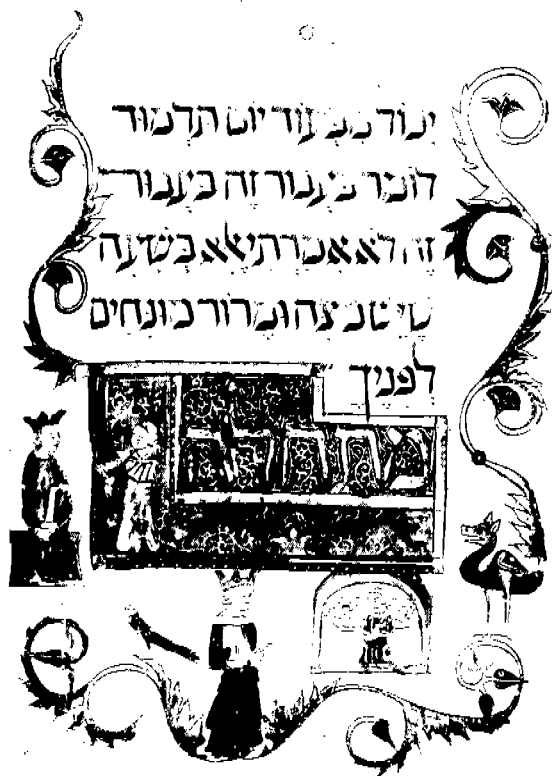 יכול מבעוד יום תלמוד
לומר בעבור זה בעבור
זה לא אמרתי אלא בשעה
שיש מצה ומרור מונחים
לפניך
מתחלה